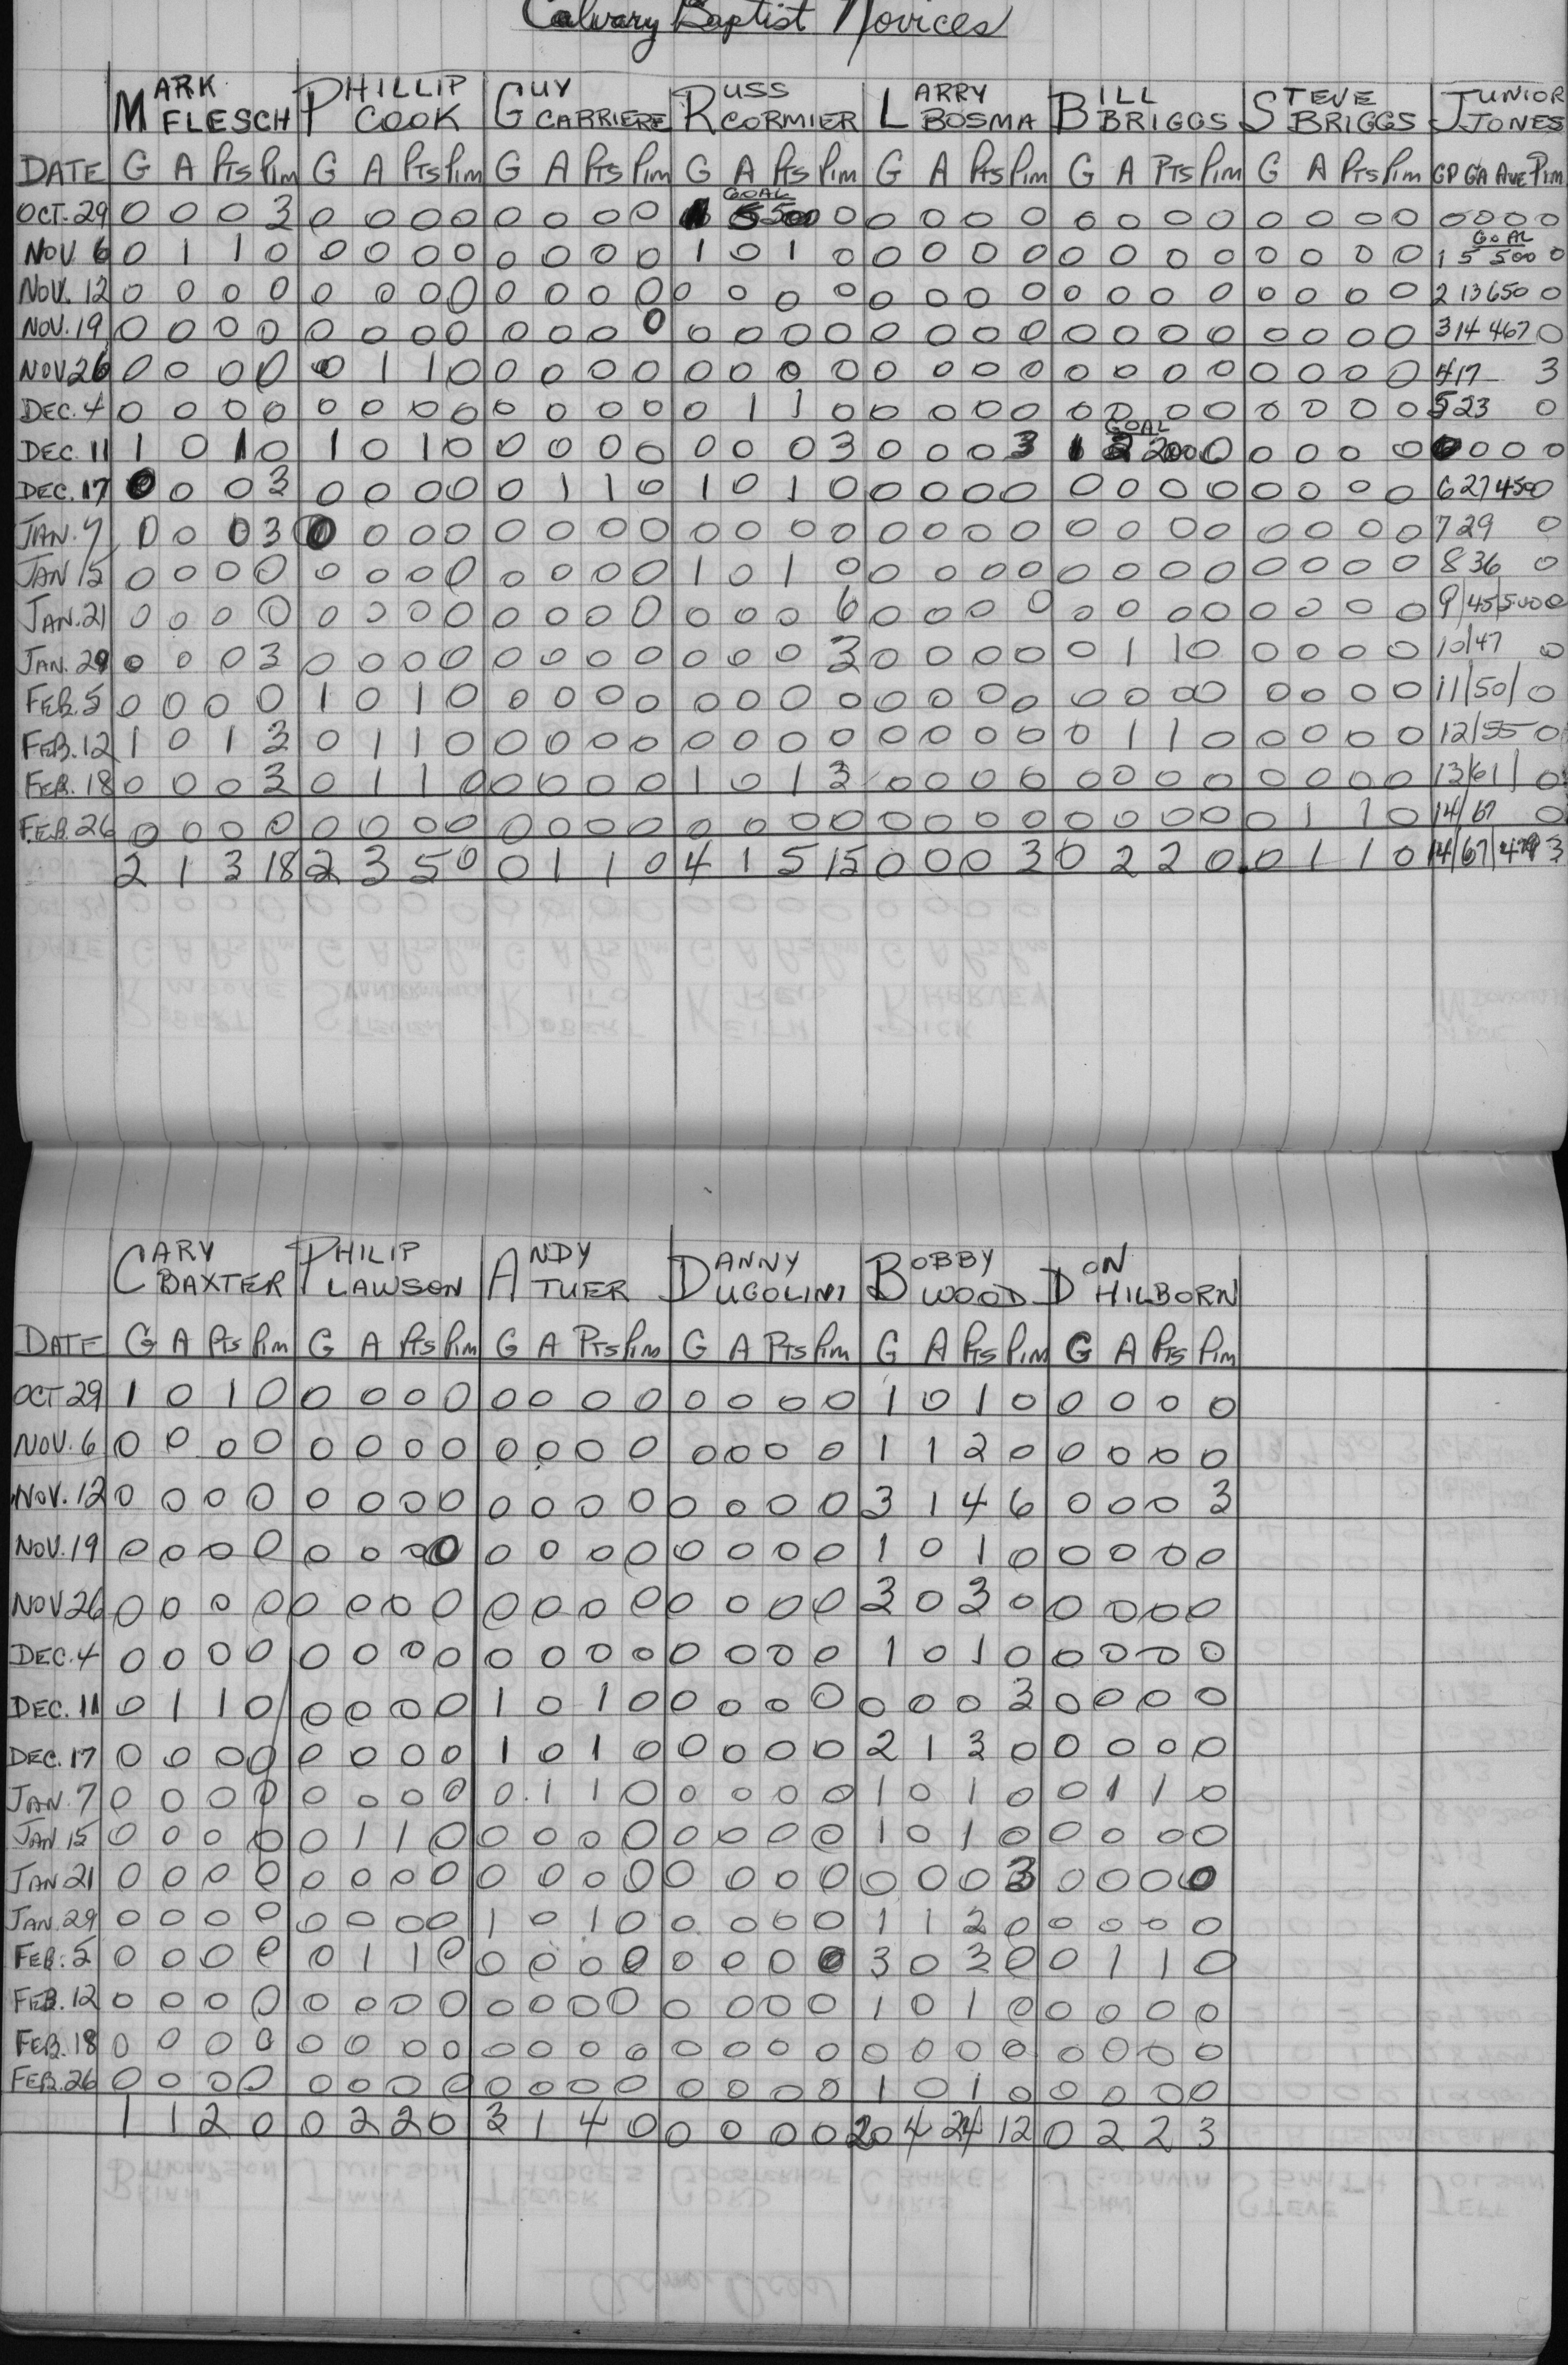 Calvary Baptist Novices
MARK FLESCH PHILLIP COOK GUY CARRIERE RUSS CORMIER LARRY BOSMA BILL BRIGGS STEVE BRIGGS JUNIOR JONES
DATE G A Pts Pim G A Pts Pim G A Pts Pim G A Pts Pim G A Pts Pim G A Pts Pim G A Pts Pim GP GA Ave Pim
GOAL
OCT. 29 0 0 0 3 0 0 0 0 0 0 0 0 1 5 500 0 0 0 0 0 0 0 0 0 0 0 0 0 0 0 0 0
GOAL
NOV 6 0 1 1 0 0 0 0 0 0 0 0 0 1 0 1 0 0 0 0 0 0 0 0 0 0 0 0 0 1 5 500 0
NOV. 12 0 0 0 0 0 0 0 0 0 0 0 0 0 0 0 0 0 0 0 0 0 0 0 0 0 0 0 0 2 13 650 0
NOV. 19 0 0 0 0 0 0 0 0 0 0 0 0 0 0 0 0 0 0 0 0 0 0 0 0 0 0 0 0 3 14 467 0
NOV 26 0 0 0 0 0 1 1 0 0 0 0 0 0 0 0 0 0 0 0 0 0 0 0 0 0 0 0 0 4 17 3
DEC. 4 0 0 0 0 0 0 0 0 0 0 0 0 0 1 1 0 0 0 0 0 0 0 0 0 0 0 0 0 5 23 0
GOAL
DEC. 11 1 0 1 0 1 0 1 0 0 0 0 0 0 0 0 3 0 0 0 3 1 2 200 0 0 0 0 0 0 0 0 0
DEC. 17 0 0 0 3 0 0 0 0 0 1 1 0 1 0 1 0 0 0 0 0 0 0 0 0 0 0 0 0 6 27 450 0
JAN. 7 0 0 0 3 0 0 0 0 0 0 0 0 0 0 0 0 0 0 0 0 0 0 0 0 0 0 0 0 7 29 0
JAN 15 0 0 0 0 0 0 0 0 0 0 0 0 1 0 1 0 0 0 0 0 0 0 0 0 0 0 0 0 8 36 0
JAN. 21 0 0 0 0 0 0 0 0 0 0 0 0 0 0 0 6 0 0 0 0 0 0 0 0 0 0 0 0 9/45/500 0
JAN. 29 0 0 0 3 0 0 0 0 0 0 0 0 0 0 0 3 0 0 0 0 0 1 1 0 0 0 0 0 10/47 0
FEB. 5 0 0 0 0 1 0 1 0 0 0 0 0 0 0 0 0 0 0 0 0 0 0 0 0 0 0 0 0 11/50/ 0
FEB. 12 1 0 1 3 0 1 1 0 0 0 0 0 0 0 0 0 0 0 0 0 0 1 1 0 0 0 0 0 12/55 0
FEB. 18 0 0 0 3 0 1 1 0 0 0 0 0 1 0 1 3 0 0 0 0 0 0 0 0 0 0 0 0 13/61/ 0
FEB. 26 0 0 0 0 0 0 0 0 0 0 0 0 0 0 0 0 0 0 0 0 0 0 0 0 0 1 1 0 14/67 0
2 1 3 18 2 3 5 0 0 1 1 0 4 1 5 15 0 0 0 3 0 2 2 0 0 1 1 0 14/67/479 3
CARY BAXTER PHILIP LAWSON ANDY TUER DANNY UGOLINI BOBBY WOOD DON HILBORN
DATE G A Pts Pim G A Pts Pim G A Pts Pim G A Pts Pim G A Pts Pim G A Pts Pim
OCT 29 1 0 1 0 0 0 0 0 0 0 0 0 0 0 0 0 1 0 1 0 0 0 0 0
NOV. 6 0 0 0 0 0 0 0 0 0 0 0 0 0 0 0 0 1 1 2 0 0 0 0 0
NOV. 12 0 0 0 0 0 0 0 0 0 0 0 0 0 0 0 0 3 1 4 6 0 0 0 3
NOV. 19 0 0 0 0 0 0 0 0 0 0 0 0 0 0 0 0 1 0 1 0 0 0 0 0
NOV 26 0 0 0 0 0 0 0 0 0 0 0 0 0 0 0 0 3 0 3 0 0 0 0 0
DEC. 4 0 0 0 0 0 0 0 0 0 0 0 0 0 0 0 0 1 0 1 0 0 0 0 0
DEC. 11 0 1 1 0 0 0 0 0 1 0 1 0 0 0 0 0 0 0 0 3 0 0 0 0
DEC. 17 0 0 0 0 0 0 0 0 1 0 1 0 0 0 0 0 2 1 3 0 0 0 0 0
JAN. 7 0 0 0 0 0 0 0 0 0 1 1 0 0 0 0 0 1 0 1 0 0 1 1 0
JAN 15 0 0 0 0 0 1 1 0 0 0 0 0 0 0 0 0 1 0 1 0 0 0 0 0
JAN 21 0 0 0 0 0 0 0 0 0 0 0 0 0 0 0 0 0 0 0 3 0 0 0 0
JAN. 29 0 0 0 0 0 0 0 0 1 0 1 0 0 0 0 0 1 1 2 0 0 0 0 0
FEB. 5 0 0 0 0 0 1 1 0 0 0 0 0 0 0 0 0 3 0 3 0 0 1 1 0
FEB. 12 0 0 0 0 0 0 0 0 0 0 0 0 0 0 0 0 1 0 1 0 0 0 0 0
FEB. 18 0 0 0 0 0 0 0 0 0 0 0 0 0 0 0 0 0 0 0 0 0 0 0 0
FEB. 26 0 0 0 0 0 0 0 0 0 0 0 0 0 0 0 0 1 0 1 0 0 0 0 0
1 1 2 0 0 2 2 0 3 1 4 0 0 0 0 0 20 4 24 12 0 2 2 3